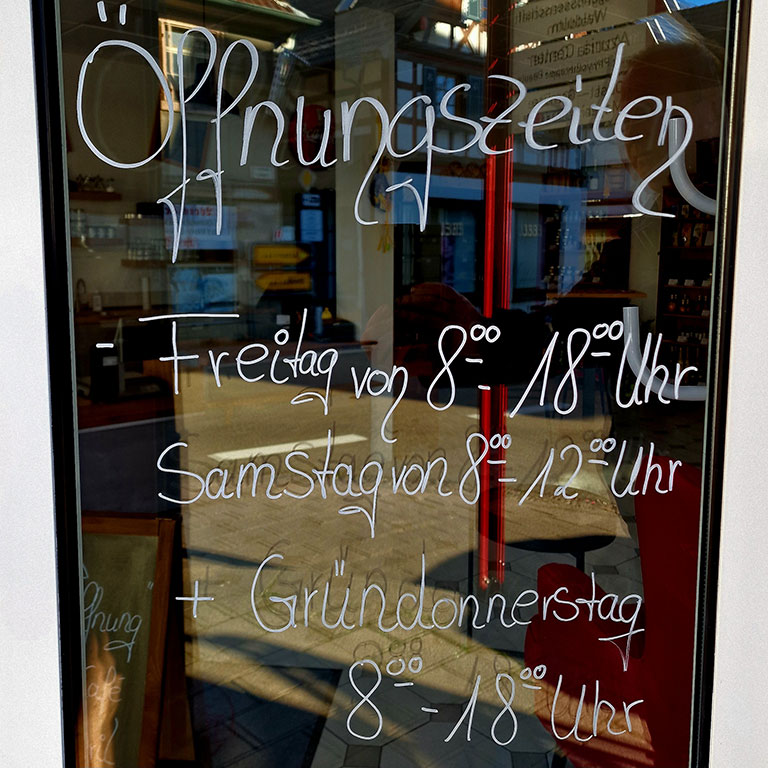 Öffnungszeiten
- Freitag von 8⁰⁰ - 18⁰⁰ Uhr
Samstag von 8⁰⁰ - 12⁰⁰ Uhr
+ Gründonnerstag
8⁰⁰ - 18⁰⁰ Uhr